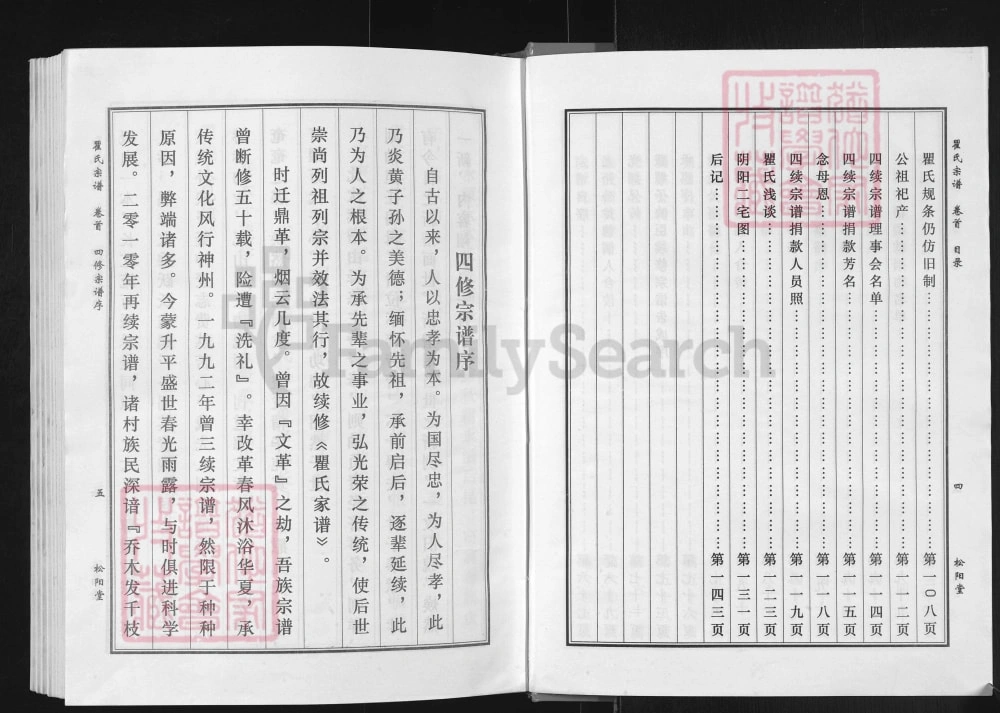 瞿氏宗谱 卷首 目录 四 松阳堂
瞿氏规条仍仿旧制……第一〇八页
公祖祀产……第一一二页
四续宗谱理事会名单……第一一四页
四续宗谱捐款芳名……第一一五页
念母恩……第一一八页
四续宗谱捐款人员照……第一一九页
瞿氏浅谈……第一二三页
阴阳二宅图……第一三一页
后记……第一四三页
四修宗谱序
自古以来，人以忠孝为本。为国尽忠，为人尽孝，此
乃炎黄子孙之美德；缅怀先祖，承前启后，逐辈延续，此
乃为人之根本。为承先辈之事业，弘光荣之传统，使后世
崇尚列祖列宗并效法其行，故续修《瞿氏家谱》。
时迁鼎革，烟云几度。曾因『文革』之劫，吾族宗谱
曾断修五十载，险遭『洗礼』。幸改革春风沐浴华夏，承
传统文化风行神州。一九九二年曾三续宗谱，然限于种种
原因，弊端诸多。今蒙升平盛世春光雨露，与时俱进科学
发展。二零一零年再续宗谱，诸村族民深谙『乔木发千枝
瞿氏宗谱 卷首 四修宗谱序 五 松阳堂
FamilySearch